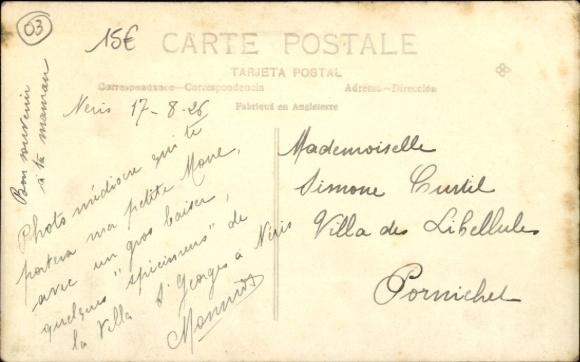 03
15€
CARTE POSTALE
TARJETA POSTAL
Correspondance—Correspondencia
Adresse—Dirección
Fabriqué en Angleterre
Bon souvenir
à ta maman
Neris 17-8-26
Photo médiocre qui te
portera ma petite Mone,
avec un gros baiser,
quelques "spécimens" de
la Villa St Georges à Néris
Mademoiselle
Simone Curtil
Villa des Libellules
Pornichet